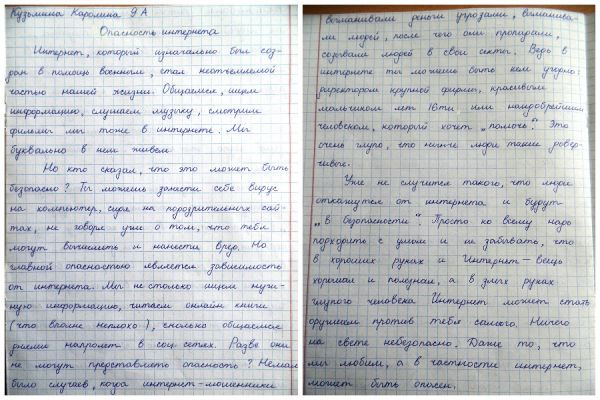 Кузьмина Каролина 9А
Опасность интернета
Интернет, который изначально был соз-
дан в помощь военным, стал неотъемлемой
частью нашей жизни. Общаемся, ищем
информацию, слушаем музыку, смотрим
фильмы мы тоже в интернете. Мы
буквально в нем живем.
Но кто сказал, что это может быть
безопасно? Ты можешь занести себе вирус
на компьютер, сидя на подозрительных сай-
тах, не говоря уже о том, что тебя
могут вычислить и нанести вред. Но
главной опасностью является зависимость
от интернета. Мы не столько ищем нуж-
ную информацию, читаем онлайн книги
(что вполне неплохо), сколько общаемся
днями напролет в соц.сетях. Разве они
не могут представлять опасность? Немало
было случаев, когда интернет-мошенники
выманивали деньги угрозами, выманива-
ли людей, после чего они пропадали,
созывали людей в свои секты. Ведь в
интернете ты можешь быть кем угодно:
директором крупной фирмы, красивым
мальчиком лет 16ти или наидобрейшим
человеком, который хочет „помочь". Это
очень глупо, что нынче люди такие довер-
чивые.
Уже не случится такого, что люди
откажутся от интернета и будут
„в безопасности". Просто ко всему надо
подходить с умом и не забывать, что
в хороших руках и Интернет - вещь
хорошая и полезная, а в злых руках
глупого человека Интернет может стать
оружием против тебя самого. Ничего
на свете небезопасно. Даже то, что
мы любим, а в частности интернет,
может быть опасен.